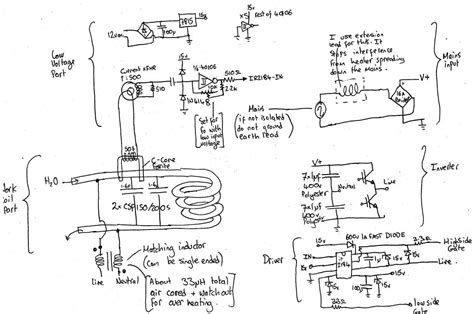 Low
Voltage
Part
12vac
7815
15v
100μ
15v
x5
Rest of 40106
Current xfmr
1:500
510
15v
1N4148
¼ 40106
510Ω
IR2184-IN
22k
Set for
Fo with
low input
voltage
I use extension
lead for this. It
stops interference
from heater spreading
down the mains.
V+
Mains
input
Mains
(if not isolated
do not ground
earth lead)
Work
coil
part
H₂O
50t
E-Core
Ferrite
2x CSP150/200s
Matching inductor
(can be single ended)
Line
Neutral
About 33μH total
air cored + watch out
for over heating.
V+
7x1μF
400v
Polyester
Neutral
Line
7x1μF
400v
Polyester
Inverter
Driver
600v 1A FAST DIODE
15v
2.3Ω
Highside
Gate
IN
15v
1μ
15v
Line
15v
100μ
15v
low side
Gate